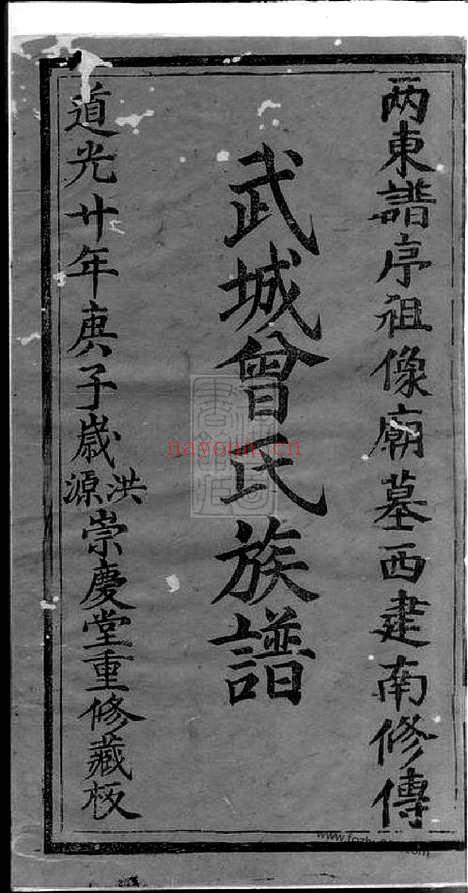 两東譜序祖像廟墓西建南修傳
武城曾氏族譜
道光廿年庚子歲洪源崇慶堂重修藏板
nayouxi.cn